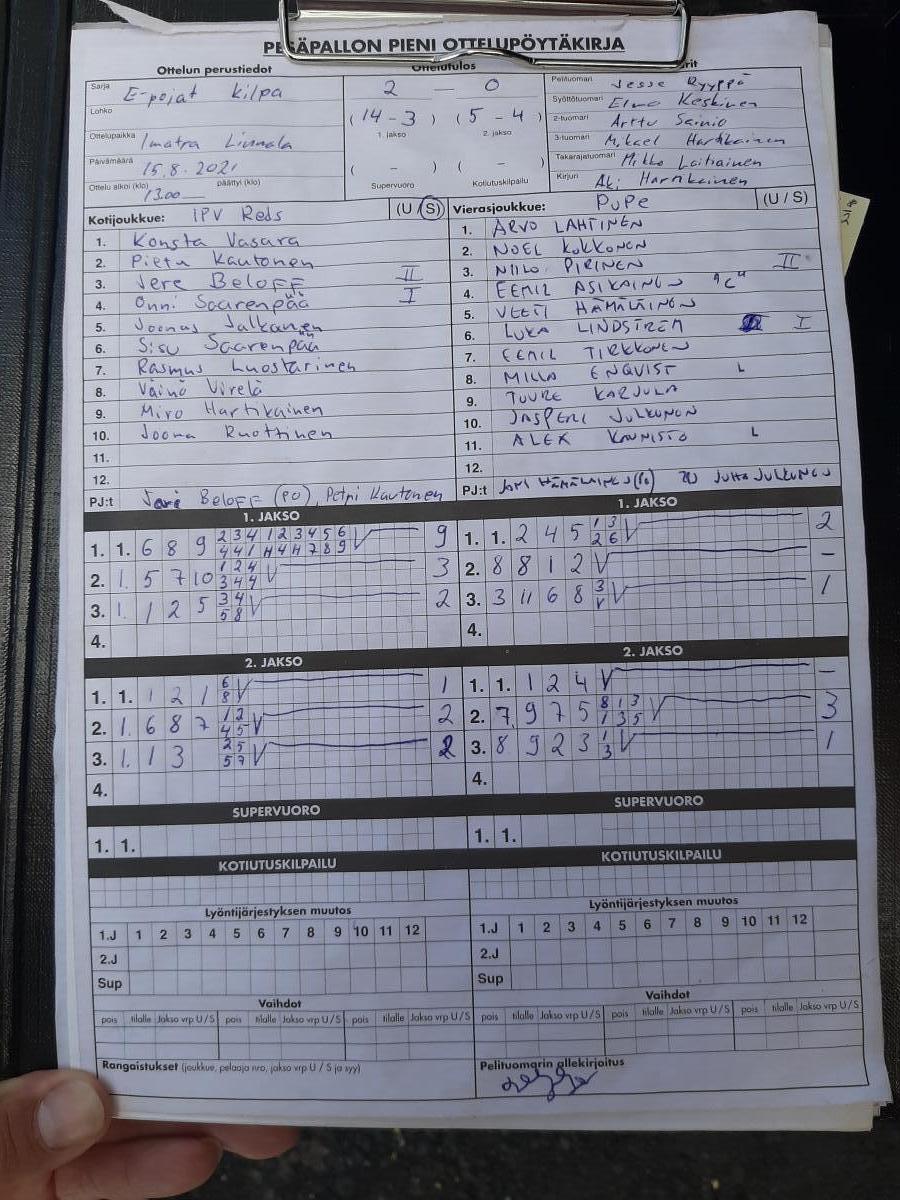 PESÄPALLON PIENI OTTELUPÖYTÄKIRJA
Ottelun perustiedot
Ottelutulos
Sarja E-pojat kilpa
Lohko
Ottelupaikka Imatra Linnala
Päivämäärä 15.8.2021
Ottelu alkoi (klo) 13.00 päättyi (klo)
2 — 0
(14 - 3) (5 - 4)
1. jakso 2. jakso
( - ) ( - )
Supervuoro Kotiutuskilpailu
Pelituomari Jesse Ryyppö
Syöttötuomari Elmo Keskinen
2-tuomari Arttu Sainio
3-tuomari Mikael Hartikainen
Takarajatuomari Mikko Laitiainen
Kirjuri Aki Hartikainen
Kotijoukkue: IPV Reds (U / S)
1. Konsta Vasara
2. Pietu Kautonen
3. Jere Beloff II
4. Onni Saarenpää I
5. Joonas Jalkanen
6. Sisu Saarenpää
7. Rasmus Luostarinen
8. Väinö Virelä
9. Miro Hartikainen
10. Joona Ruottinen
11.
12.
PJ:t Jari Beloff (PO), Petri Kautonen
Vierasjoukkue: PuPe (U / S)
1. ARVO LAHTINEN
2. NOEL KOKKONEN
3. NIILO PIRINEN II
4. EEMIL ASIKAINEN "C"
5. VEETI HÄMÄLÄINEN
6. LUKA LINDSTREM I
7. EEMIL TIRKKONEN
8. MILLA ENQVIST L
9. TUURE KARJULA
10. JASPERI JULKUNEN
11. ALEX KAUNISTO L
12.
PJ:t JANI HÄMÄLÄINEN JUHA JULKUNEN
1. JAKSO
1. 1. 6 8 9 2 3 4 1 2 3 4 5 6 9
4 4 1 H 4 H 7 8 9
2. 1. 5 7 10 1 2 4 3
3 4 4
3. 1. 1 2 5 3 4 2
5 8
4.
1. JAKSO
1. 1. 2 4 5 1 3 2
2 6
2. 8 8 1 2 –
3. 3 11 6 8 3 1
4.
2. JAKSO
1. 1. 1 2 1 6 1
8
2. 1. 6 8 7 1 2 2
4 5
3. 1. 1 3 2 5 2
5 7
4.
2. JAKSO
1. 1. 1 2 4 –
2. 7. 9 7 5 8 1 3 3
1 3 5
3. 8 9 2 3 1 1
3
4.
SUPERVUORO
1. 1.
SUPERVUORO
1. 1.
KOTIUTUSKILPAILU
KOTIUTUSKILPAILU
Lyöntijärjestyksen muutos
1.J 1 2 3 4 5 6 7 8 9 10 11 12
2.J
Sup
Lyöntijärjestyksen muutos
1.J 1 2 3 4 5 6 7 8 9 10 11 12
2.J
Sup
Vaihdot
pois tilalle Jakso vrp U / S pois tilalle Jakso vrp U / S pois tilalle Jakso vrp U / S
Vaihdot
pois tilalle Jakso vrp U / S pois tilalle Jakso vrp U / S pois tilalle Jakso vrp U / S
Rangaistukset (joukkue, pelaaja nro, jakso vrp U / S ja syy)
Pelituomarin allekirjoitus